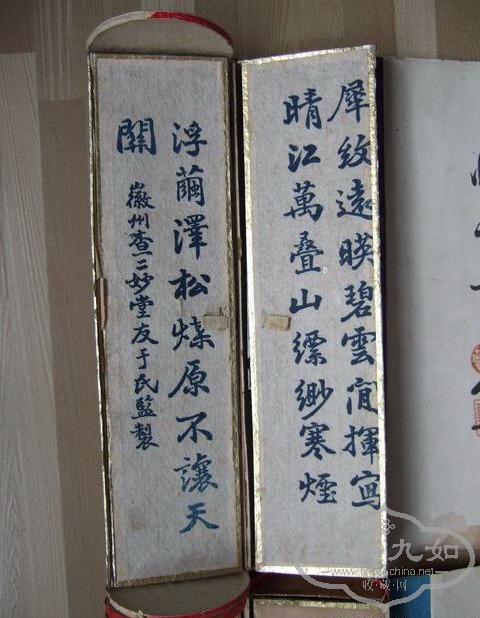 犀紋遠暎碧雲間揮寫
晴江萬叠山縹緲寒煙
浮繭澤松煤原不讓天
關
徽州查二妙堂友于氏監製
九如
收·藏·网